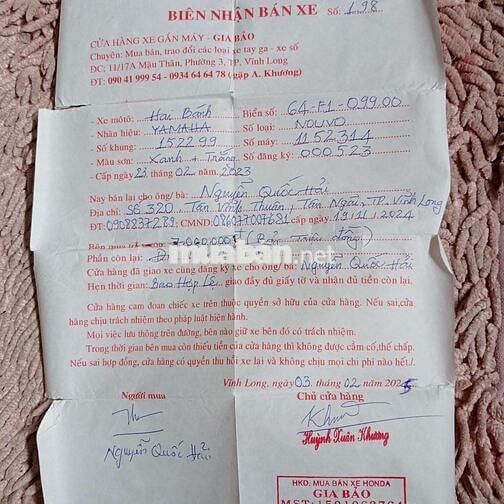 BIÊN NHẬN BÁN XE Số: 198
CỬA HÀNG XE GẮN MÁY - GIA BẢO
Chuyên: Mua bán, trao đổi các loại xe tay ga - xe số
ĐC: 11/17A Mậu Thân, Phường 3, TP. Vĩnh Long
ĐT: 090 41 999 54 - 0934 64 64 78 (gặp A. Khương)
- Xe môtô: Hai Bánh Biển số: 64-F1-099.00
- Nhãn hiệu: YAMAHA Số loại: NOUVO
- Số khung: 152299 Số máy: 1152314
- Màu sơn: Xanh + Trắng Số đăng ký: 000523
- Cấp ngày 23 tháng 02 năm 2023
Nay bán lại cho ông/ bà: Nguyễn Quốc Hải
Địa chỉ: Số 320, Tân Vĩnh Thuận, Tân Ngãi, TP. Vĩnh Long
ĐT: 0908837289; CMND: 086077007691 cấp ngày 19/11/2024
7.000.000đ
Phần còn lại:
muaban.net
Cửa hàng đã giao xe cùng đăng ký xe cho ông/ bà: Nguyễn Quốc Hải
Hẹn thời gian: Bao Hợp Lệ, giao đầy đủ giấy tờ và nhận đủ tiền còn lại.
Cửa hàng cam đoan chiếc xe trên thuộc quyền sở hữu của cửa hàng. Nếu sai, cửa hàng chịu trách nhiệm theo pháp luật hiện hành.
Mọi việc lưu thông trên đường, bên nào giữ xe bên đó có trách nhiệm.
Trong thời gian bên mua còn thiếu tiền của cửa hàng thì không được cầm cố, thế chấp.
Nếu sai hợp đồng, cửa hàng có quyền thu hồi xe lại và không chịu mọi chi phí nào hết./.
Vĩnh Long, ngày 03 tháng 02 năm 2025
Người mua Chủ cửa hàng
Nguyễn Quốc Hải Huỳnh Xuân Khương
HKD. MUA BÁN XE HONDA
GIA BẢO